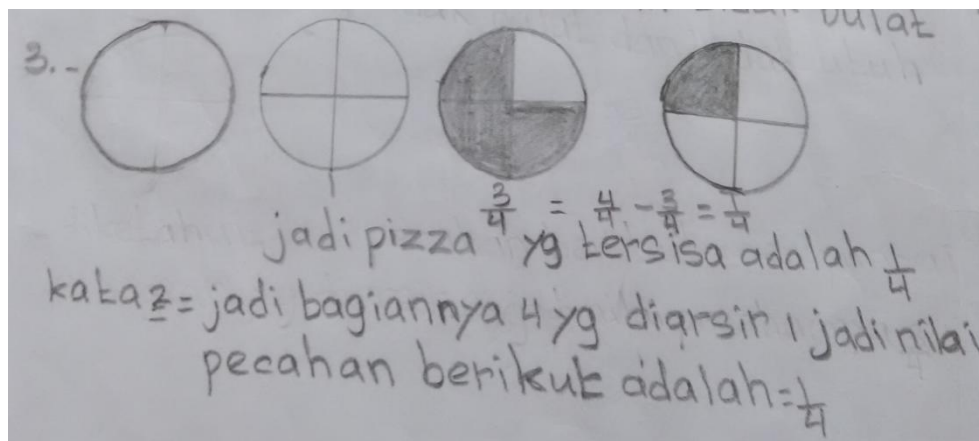 bulat
3.-
3/4 = 4/4 - 3/4 = 1/4
jadi pizza yg tersisa adalah 1/4
kata2 = jadi bagiannya 4 yg diarsir 1 jadi nilai
pecahan berikut adalah = 1/4